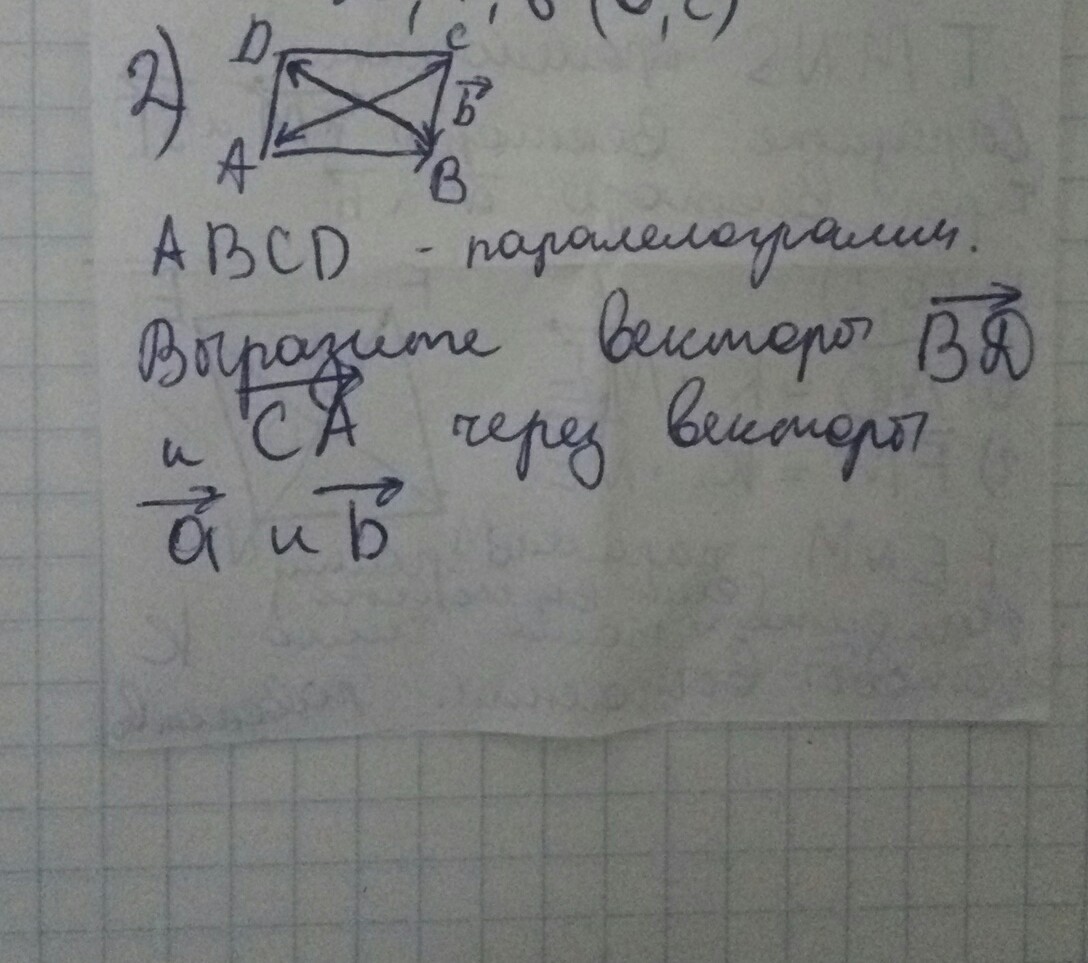 2) D C
b
A B
ABCD - паралелограмм.
Выразите векторы BD
и CA через векторы
a и b